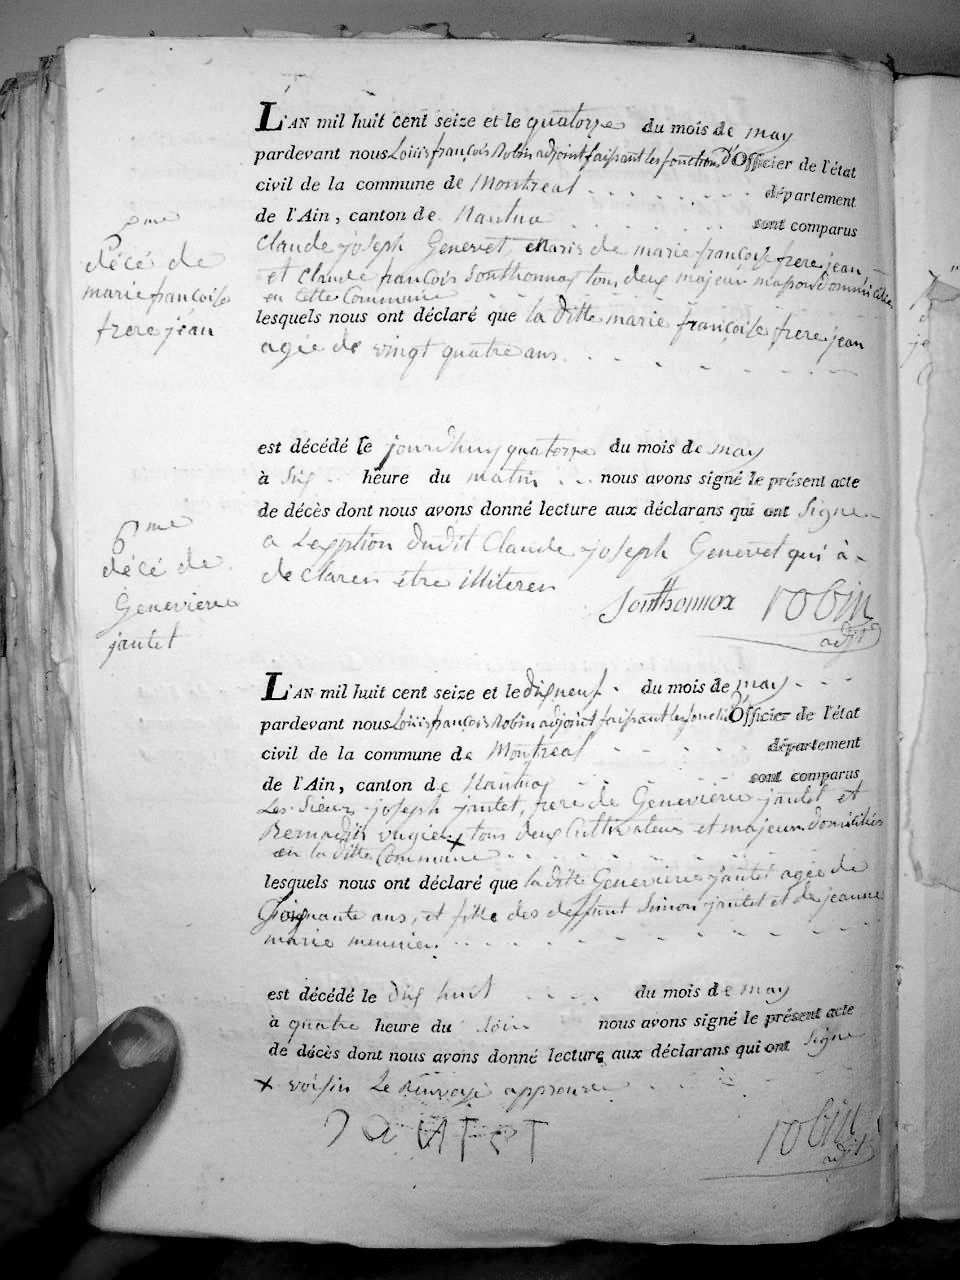 L'AN mil huit cent seize et le quatorze du mois de may
pardevant nous Louis françois Robin adjoint faissant les fonctions d'Officier de l'état
civil de la commune de Montreal département
de l'Ain, canton de Nantua sont comparus
Claude joseph Genevet, maris de marie françoise frere jean
et Claude françois Sonthonnax tous deux majeur domicilié
en cette Commune
lesquels nous ont déclaré que la ditte marie françoise frere jean
agée de vingt quatre ans.
est décédé le jourdhuy quatorze du mois de may
à six heure du matin nous avons signé le présent acte
de décès dont nous avons donné lecture aux déclarans qui ont Signé
a Lexption dudit Claude joseph Genevet qui à
declaren être illiteren
Sonthonnax robin
adjt
5me
décé de
marie françoise
frere jean
6me
décé de
Genevieve
jantet
L'AN mil huit cent seize et le dixneuf du mois de may
pardevant nous Louis françois Robin adjoint faissant les fonctions d'Officier de l'état
civil de la commune de Montreal département
de l'Ain, canton de Nantua sont comparus
Les Sieurs joseph jantet, frere de Genevieve jantet et
tous deux Cultivateurs et majeurs domiciliés
en la ditte Commune
lesquels nous ont déclaré que la ditte Genevieve jantet agée de
ans, et fille des deffunt Simon jantet et de jeanne
marie meunier.
est décédé le dix huit du mois de may
à quatre heure du soir nous avons signé le présent acte
de décès dont nous avons donné lecture aux déclarans qui ont Signé
x voisin Le Renvoye approuvé
robin
adjt